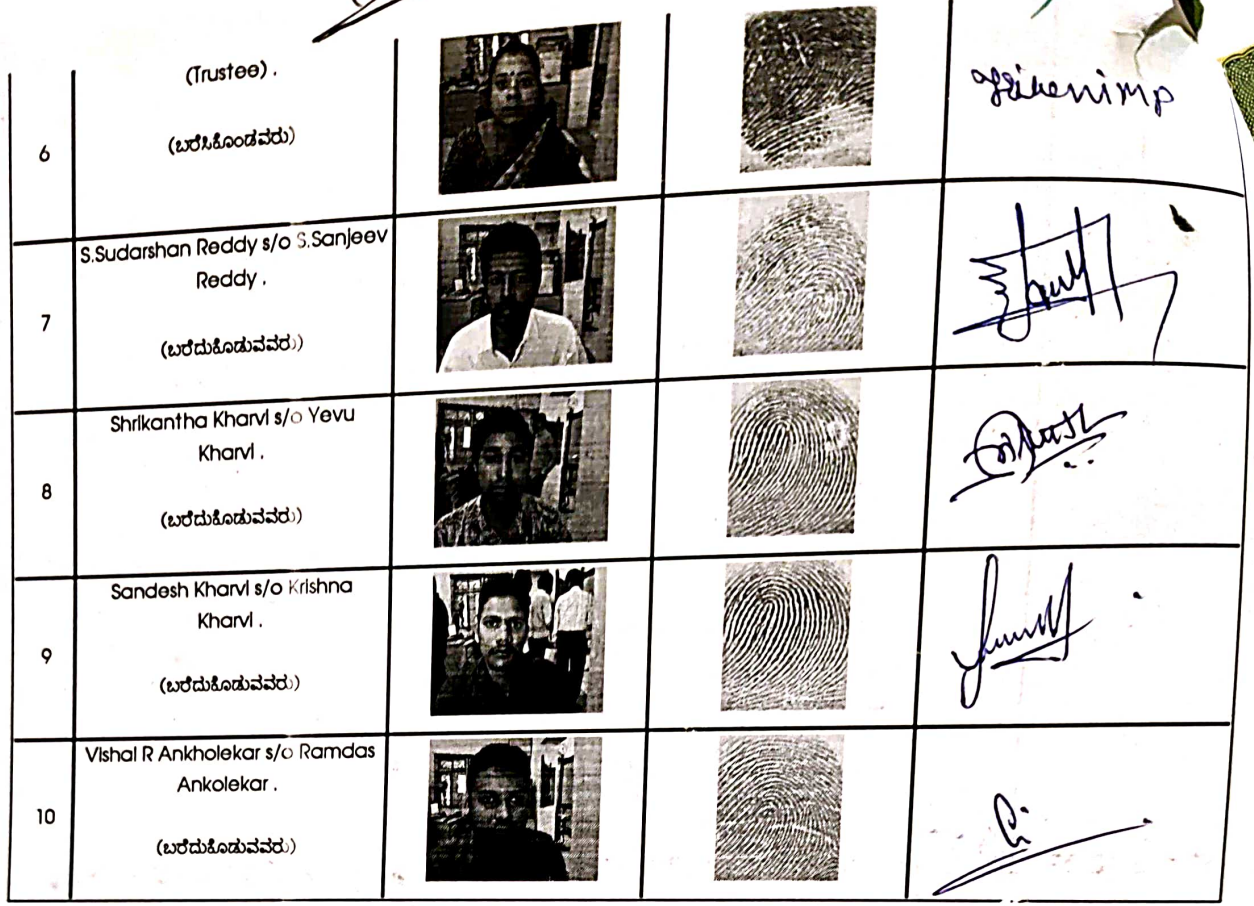 (Trustee) .
6
(ಬರೆಸಿಕೊಂಡವರು)
S.Sudarshan Reddy s/o S.Sanjeev
Reddy .
7
(ಬರೆದುಕೊಡುವವರು)
Shrikantha Kharvi s/o Yevu
Kharvi .
8
(ಬರೆದುಕೊಡುವವರು)
Sandesh Kharvi s/o Krishna
Kharvi .
9
(ಬರೆದುಕೊಡುವವರು)
Vishal R Ankholekar s/o Ramdas
Ankolekar .
10
(ಬರೆದುಕೊಡುವವರು)